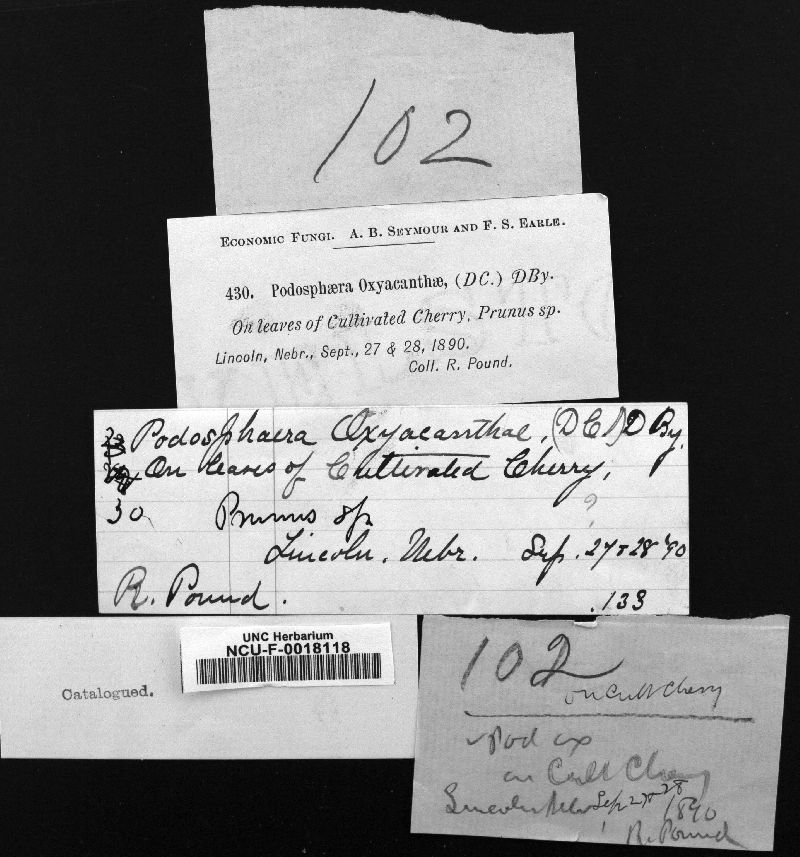 102
ECONOMIC FUNGI. A. B. SEYMOUR AND F. S. EARLE.
430. Podosphæra Oxyacanthæ, (DC.) DBy.
On leaves of Cultivated Cherry, Prunus sp.
Lincoln, Nebr., Sept., 27 & 28, 1890.
Coll. R. Pound.
Podosphaera Oxyacanthae, (DC.) D By.
On leaves of Cultivated Cherry,
30 Prunus sp ?
Lincoln, Nebr. Sep. 27 & 28 '90
R. Pound. .133
UNC Herbarium
NCU-F-0018118
Catalogued.
102
on Cult Cherry
Pod ox
on Cult Cherry
Lincoln Nebr Sep 27 & 28
1890
R. Pound